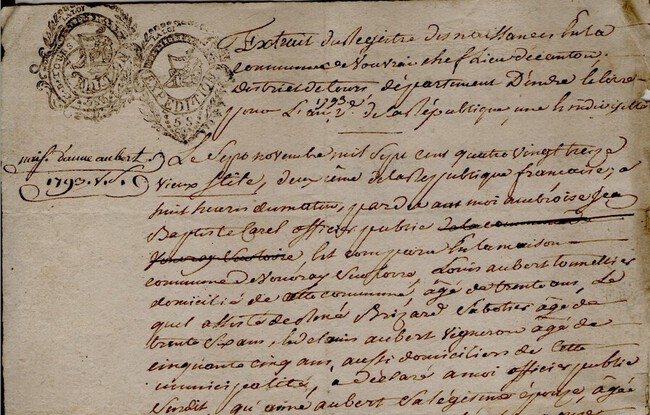 Extrait du Registre des naissances En la
commune de Vouvrai chef Lieu de canton,
District de tours, département D'indre et loire
pour L'an 2e de la République une & indivisible
1793
naiss. d'anne aubert
1793. V. S.
Le Sept novembre mil Sept cent quatre vingt treize
vieux Stile, deuxième de la République française, a
huit heures du matin, par devant moi ambroise Jean
Baptiste Carel officier public de la commune de
Vouvray Sur loire, est comparu En la maison
commune de Vouvray Sur loire, Louis aubert tonnellier
domicilié de cette commune, âgé de trente ans, Le
quel assisté de René Brizard Sabotier âgé de
trente Six ans, & de louis aubert Vigneron âgé de
cinquante cinq ans, aussi domiciliés de cette
municipalité, a déclaré a moi officier public
Susdit qu'anne aubert Sa légitime épouse, âgée